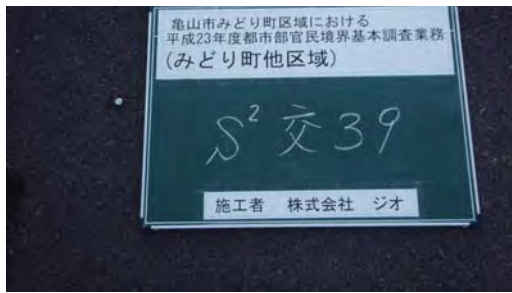 亀山市みどり町区域における
平成23年度都市部官民境界基本調査業務
(みどり町他区域)
S² 交 39
施工者 株式会社 ジオ